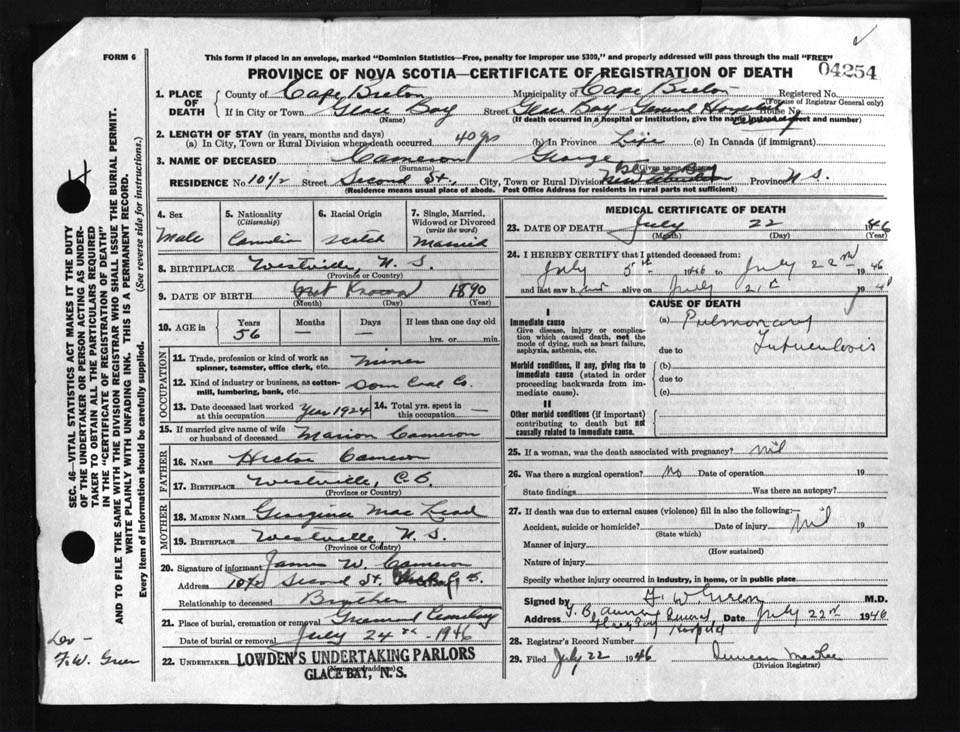 FORM 6
This form if placed in an envelope, marked "Dominion Statistics—Free, penalty for improper use $300," and properly addressed will pass through the mail "FREE"
04254
PROVINCE OF NOVA SCOTIA—CERTIFICATE OF REGISTRATION OF DEATH
1. PLACE OF DEATH
County of Cape Breton Municipality of Cape Breton Registered No.
(For use of Registrar General only)
If in City or Town Glace Bay Street Glace Bay General Hospital House No.
(Name) (If death occurred in a hospital or institution, give the name instead of street and number)
2. LENGTH OF STAY (in years, months and days)
(a) In City, Town or Rural Division where death occurred 40 yrs (b) In Province Life (c) In Canada (if immigrant)
3. NAME OF DECEASED Cameron George
(Surname) (Given name)
RESIDENCE No 10 1/2 Street Second St., City, Town or Rural Division New Aberdeen Province N.S.
(Residence means usual place of abode. Post Office Address for residents in rural parts not sufficient)
4. Sex
Male
5. Nationality
(Citizenship)
Canadian
6. Racial Origin
Scotch
7. Single, Married, Widowed or Divorced
(write the word)
Married
8. BIRTHPLACE Westville, N.S.
(Province or Country)
9. DATE OF BIRTH Not Known 1890
(Month) (Day) (Year)
10. AGE in
Years Months Days If less than one day old
56 — — hrs. or min.
OCCUPATION
11. Trade, profession or kind of work as spinner, teamster, office clerk, etc. Miner
12. Kind of industry or business, as cotton-mill, lumbering, bank, etc. Dom Coal Co.
13. Date deceased last worked at this occupation Year 1924
14. Total yrs. spent in this occupation —
15. If married give name of wife or husband of deceased Marion Cameron
FATHER
16. NAME Hector Cameron
17. BIRTHPLACE Westville, C.B.
(Province or Country)
MOTHER
18. MAIDEN NAME Georgina MacLead
19. BIRTHPLACE Westville N.S.
(Province or Country)
20. Signature of informant James W. Cameron
Address 10 1/2 Second St.
Relationship to deceased Brother
21. Place of burial, cremation or removal Greenwood Cemetery
Date of burial or removal July 24th - 1946
22. UNDERTAKER LOWDEN'S UNDERTAKING PARLORS
(Name and address)
GLACE BAY, N. S.
MEDICAL CERTIFICATE OF DEATH
23. DATE OF DEATH July 22 1946
(Month) (Day) (Year)
24. I HEREBY CERTIFY that I attended deceased from:
July 5th 1946 to July 22nd 1946
and last saw him alive on July 21st 194
CAUSE OF DEATH
I
Immediate cause
Give disease, injury or complication which caused death, not the mode of dying, such as heart failure, asphyxia, asthenia, etc.
(a) Pulmonary
due to Tuberculosis
Morbid conditions, if any, giving rise to immediate cause (stated in order proceeding backwards from immediate cause).
(b)
due to
(c)
II
Other morbid conditions (if important) contributing to death but not causally related to immediate cause.
25. If a woman, was the death associated with pregnancy? nil
26. Was there a surgical operation? No Date of operation 19
State findings Was there an autopsy?
27. If death was due to external causes (violence) fill in also the following:—
Accident, suicide or homicide? Date of injury nil 19
(State which)
Manner of injury
(How sustained)
Nature of injury
Specify whether injury occurred in industry, in home, or in public place
Signed by F. W. Green M.D.
Address T. B. Annex Glace Bay General Hospital Date July 22nd 1946
28. Registrar's Record Number
29. Filed July 22 1946 Duncan MacRae
(Division Registrar)
SEC. 46—VITAL STATISTICS ACT MAKES IT THE DUTY
OF THE UNDERTAKER OR PERSON ACTING AS UNDER-
TAKER TO OBTAIN ALL THE PARTICULARS REQUIRED
IN THE "CERTIFICATE OF REGISTRATION OF DEATH"
AND TO FILE THE SAME WITH THE DIVISION REGISTRAR WHO SHALL ISSUE THE BURIAL PERMIT.
WRITE PLAINLY WITH UNFADING INK. THIS IS A PERMANENT RECORD.
Every item of information should be carefully supplied. (See reverse side for instructions.)
F. W. Green